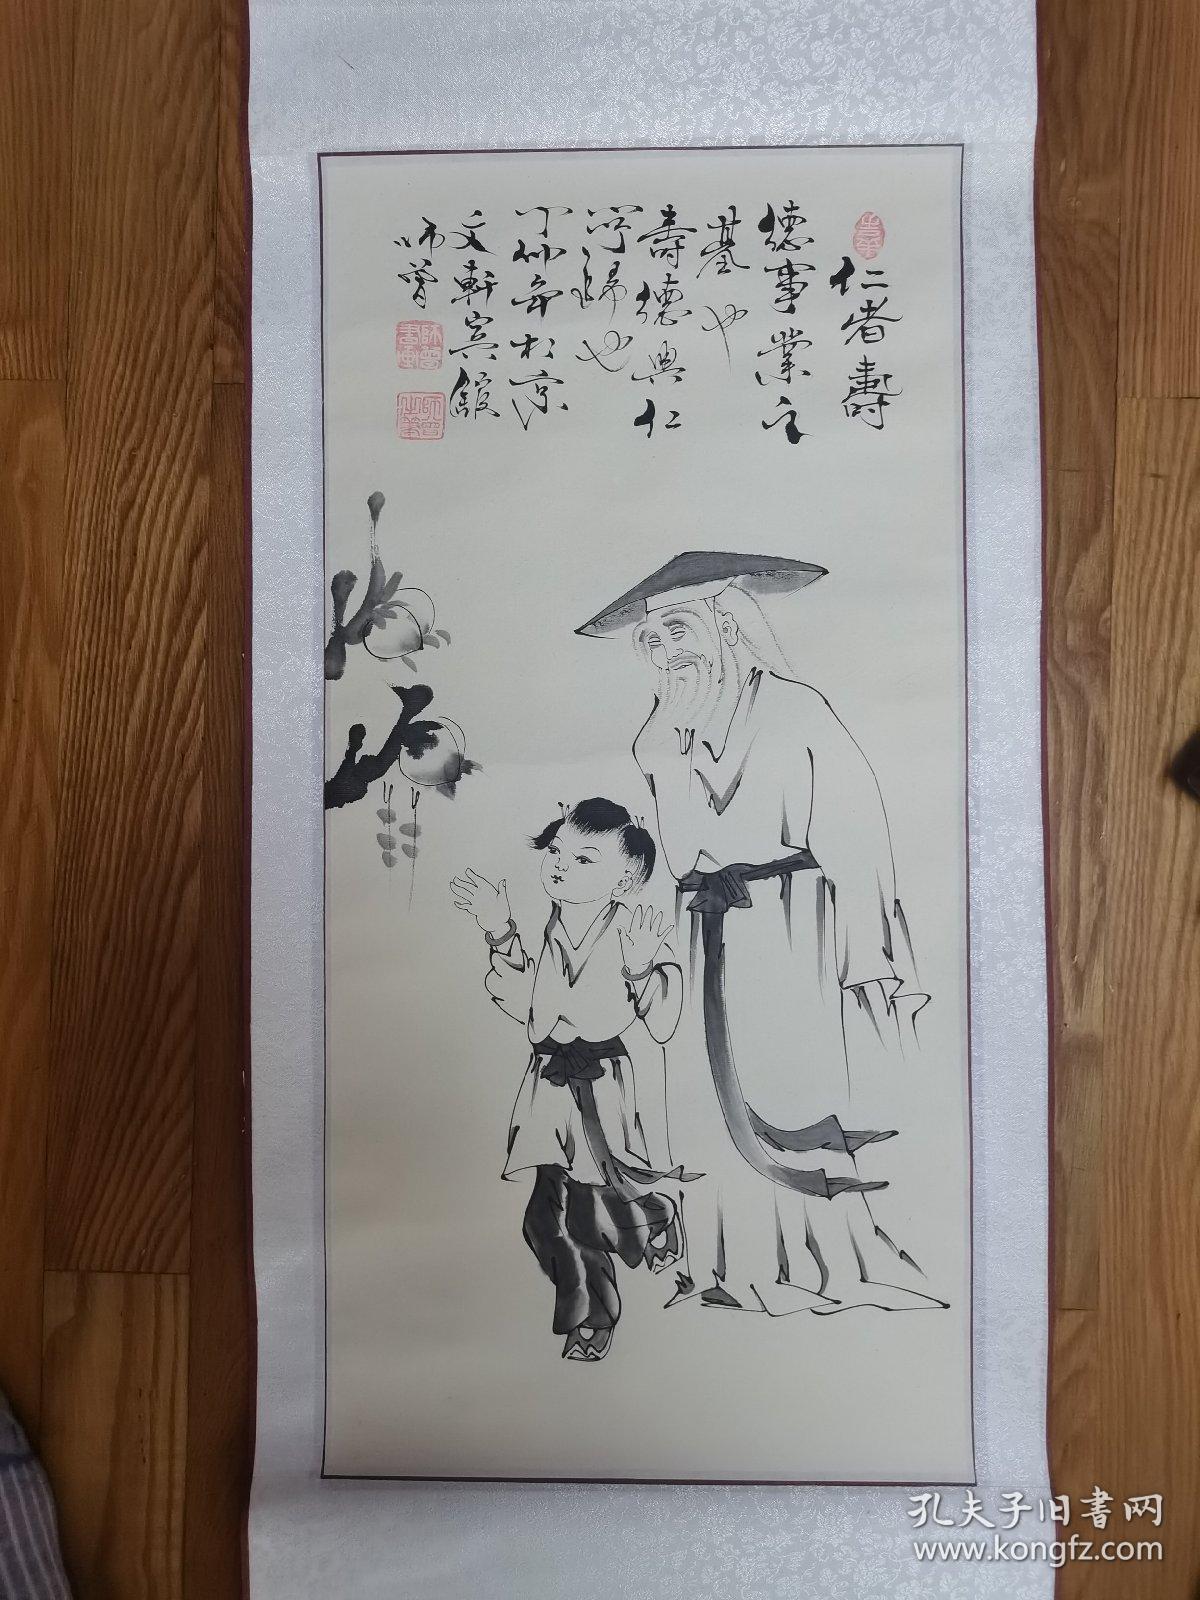 仁者壽
德事業之
基也
壽德與仁
所歸也
丁卯年於京
文軒賓館
師曾
師曾書畫
孔夫子旧书网
www.kongfz.com